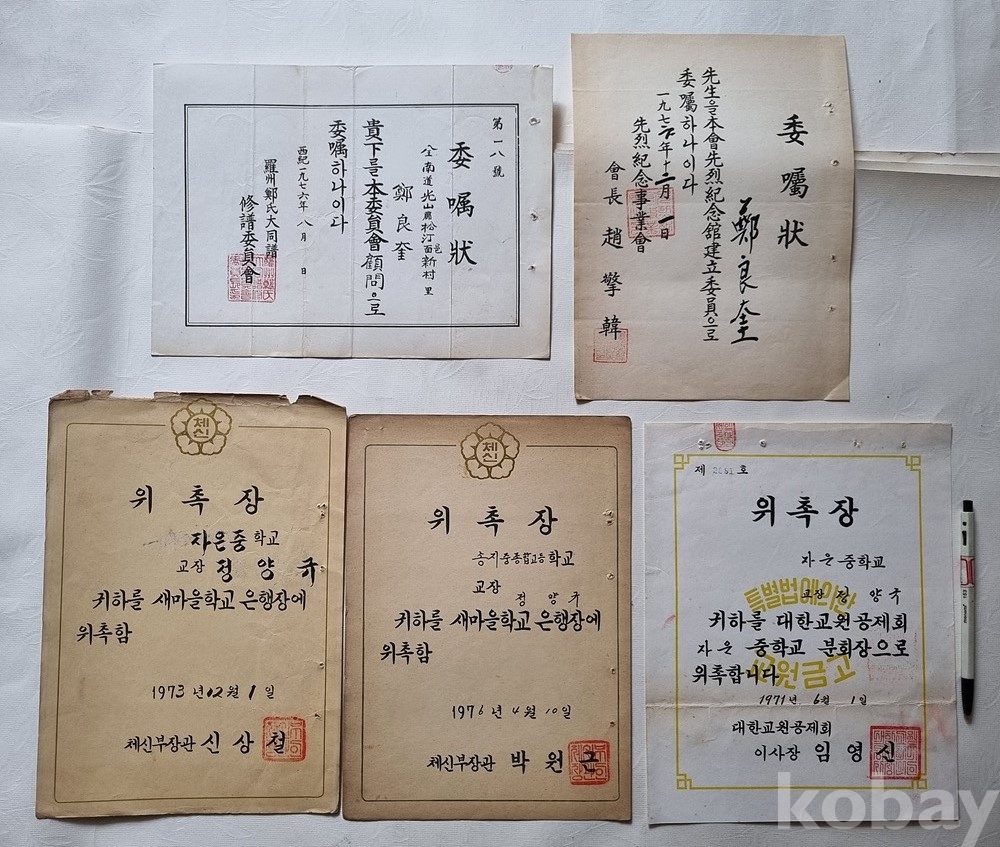 第一八號
委嘱狀
全南道光山郡松汀邑面新村里
鄭良奎
貴下를本委員會顧問으로
委嘱하나이다
西紀一九七六年八月 日
羅州鄭氏大同譜
修譜委員會
委嘱狀
鄭良奎
先生을本會先烈紀念館建立委員으로
委嘱하나이다
一九七六年十二月一日
先烈紀念事業會
會長 趙擎韓
체신
위촉장
자은중학교
교장 정양규
귀하를 새마을학교 은행장에
위촉함
1973년12월1일
체신부장관 신상철
체신
위촉장
송지중종합고등학교
교장
정양규
귀하를 새마을학교 은행장에
위촉함
1976년4월10일
체신부장관 박원근
제 2081 호
위촉장
자은중학교
특별법에의한
교장 정양규
귀하를 대한교원공제회
자은 중학교 분회장으로
교원금고
위촉합니다
1971년 6월 1일
대한교원공제회
이사장 임영신
kobay